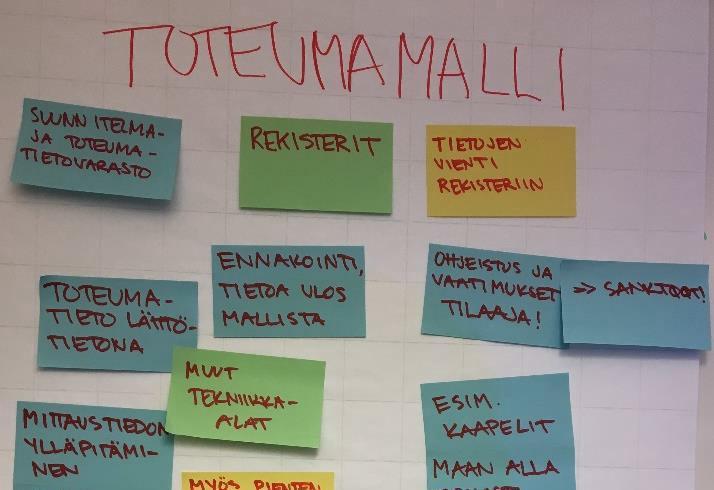 TOTEUMAMALLI
SUUNNITELMA-
JA TOTEUMA-
TIETOVARASTO
REKISTERIT
TIETOJEN
VIENTI
REKISTERIIN
TOTEUMA-
TIETO LÄHTÖ-
TIETONA
ENNAKOINTI,
TIETOA ULOS
MALLISTA
OHJEISTUS JA
VAATIMUKSET
TILAAJA!
=> SANKTIOT!
MUUT
TEKNIIKKA-
ALAT
MITTAUSTIEDON
YLLÄPITÄMI-
NEN
MYÖS PIENTEN
ESIM.
KAAPELIT
MAAN ALLA